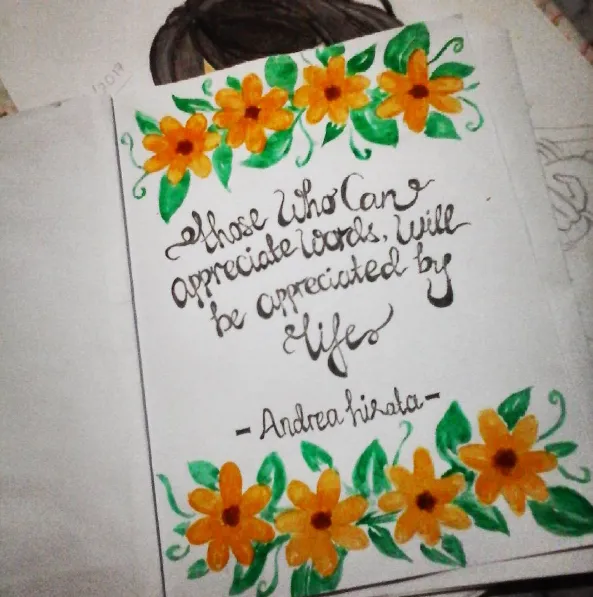 2019
Those Who Can
appreciate Words, Will
be appreciated by
life
- Andrea hirata -